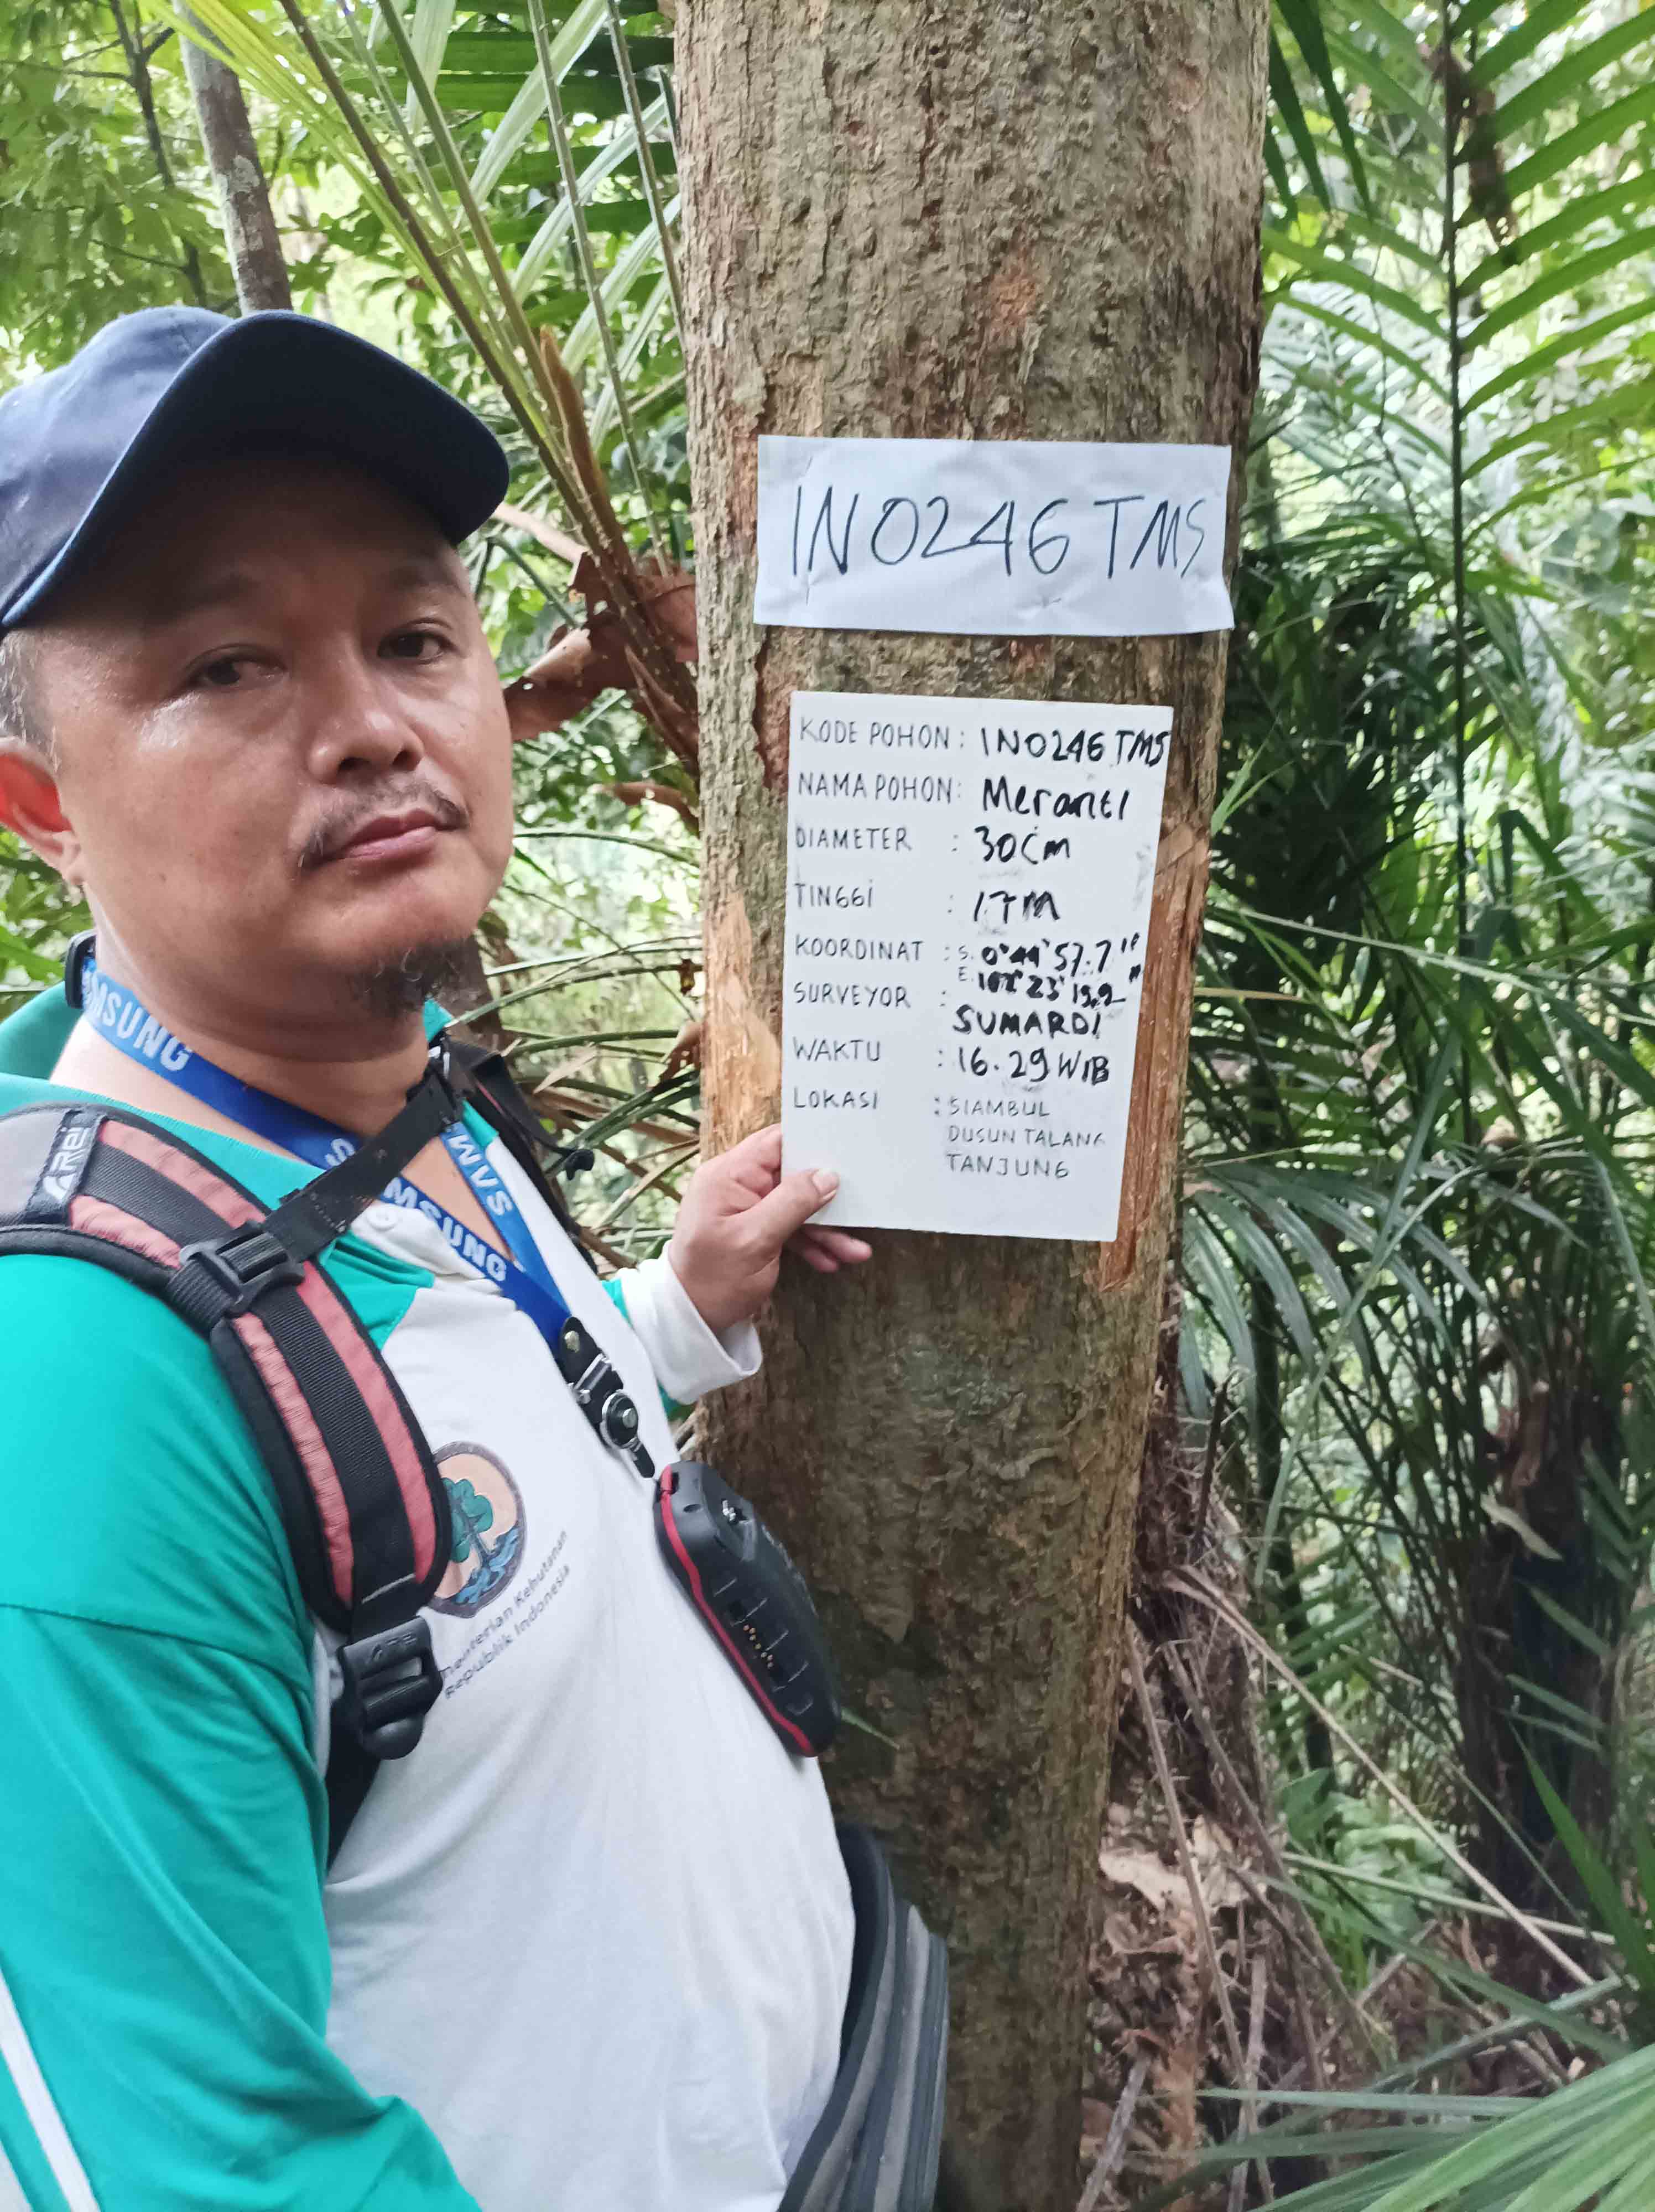 IN0246TMS
KODE POHON : IN0246 TMS
NAMA POHON : Meranti
DIAMETER : 30 Cm
TINGGI : 17M
KOORDINAT : S. 0°44'57.7"
E. 102°23'19.9"
SURVEYOR : SUMARDI
WAKTU : 16.29 WIB
LOKASI : SIAMBUL
DUSUN TALANG
TANJUNG
AREI
MSUNG
MSUNG
Kehutanan
Republik Indonesia